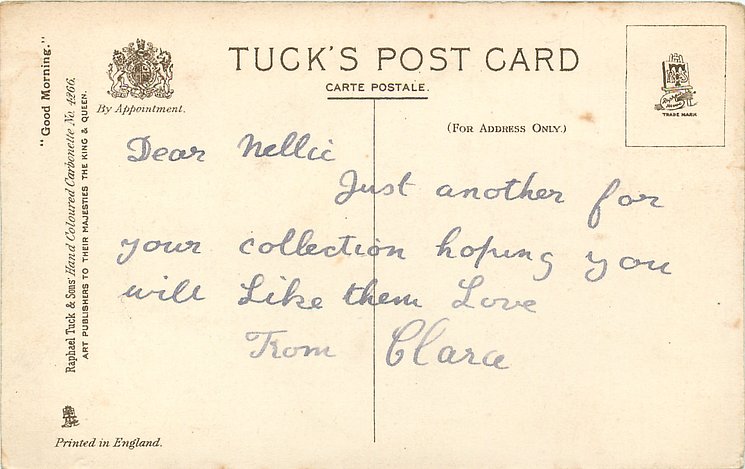 "Good Morning."
Raphael Tuck & Sons' Hand Coloured Carbonette No. 4266.
ART PUBLISHERS TO THEIR MAJESTIES THE KING & QUEEN.
By Appointment.
TUCK'S POST CARD
CARTE POSTALE.
(FOR ADDRESS ONLY.)
TRADE MARK
Dear Nellie
Just another for
your collection hoping you
will Like them Love
From Clara
Printed in England.